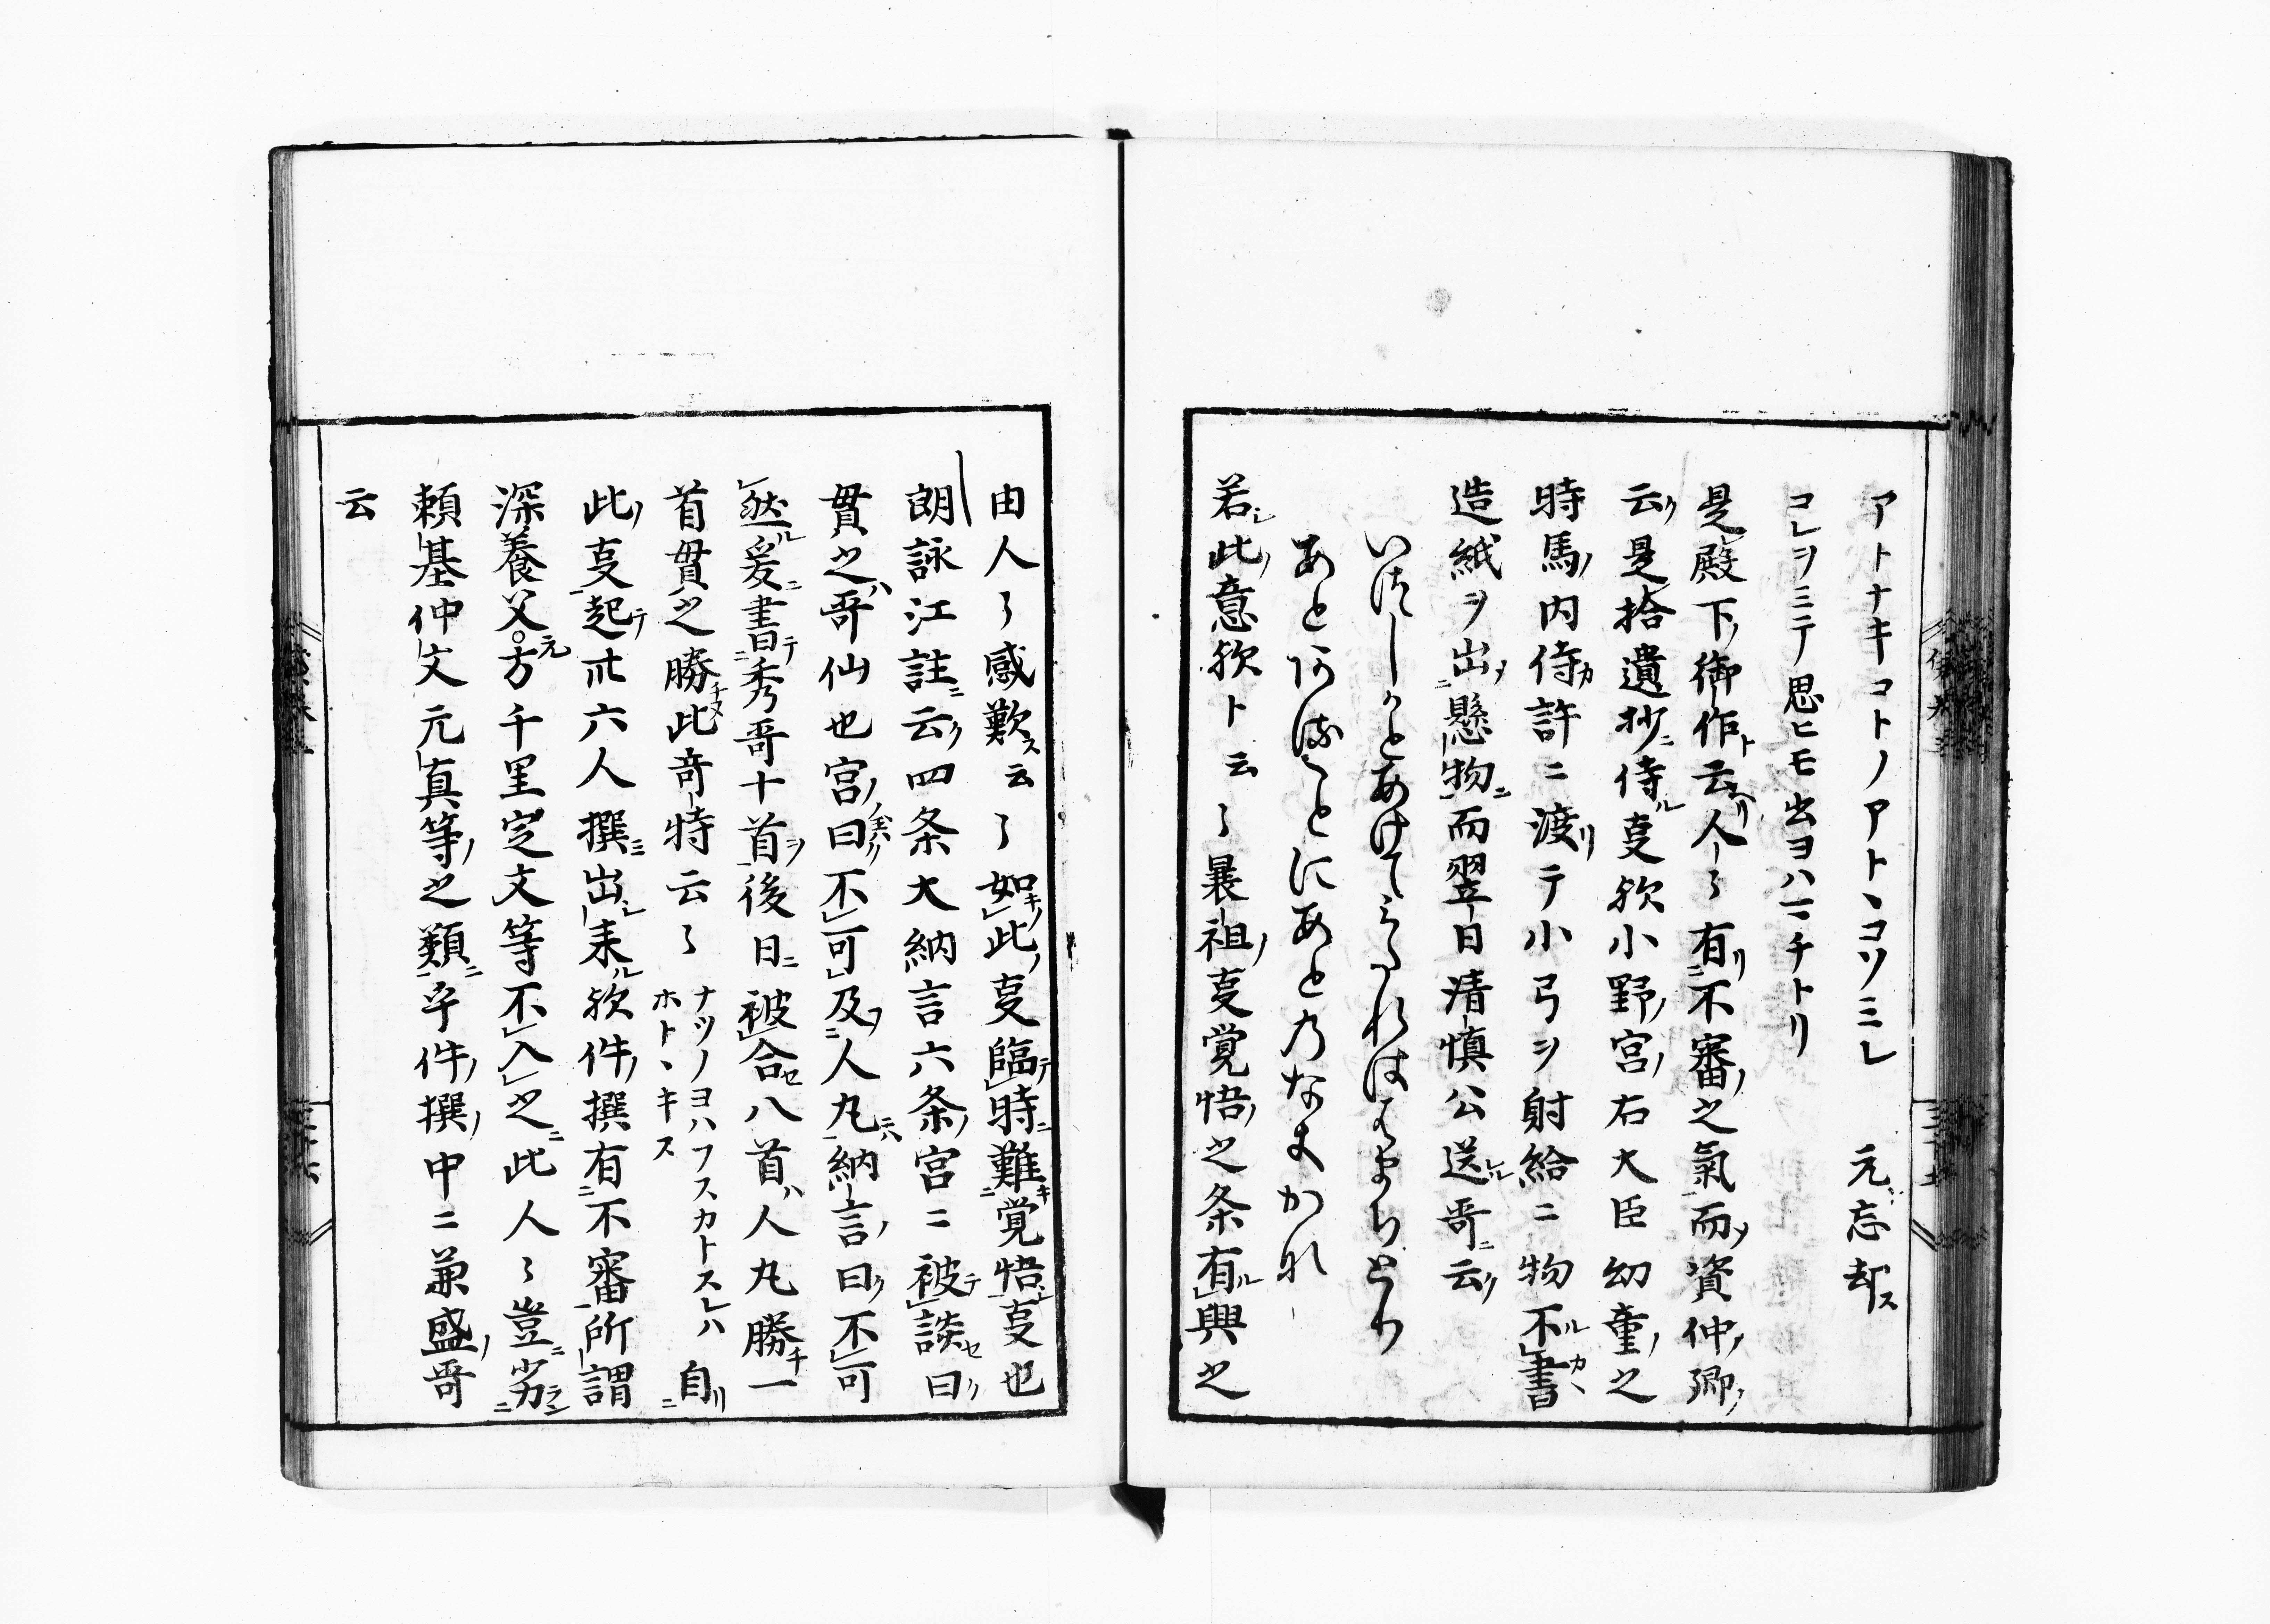 アトナキコトノアトヽコソミレ 元忘却ス
コレヲミテ思ヒモ出ヨハマチトリ
是殿下ノ御作ト云ヘリ人々有リ二不審ノ之氣一而ヲ資仲ノ卿ノ
云ク是拾遺抄ニ侍ル叓欤小野ノ宮ノ右大臣幼童ノ之
時馬ノ内侍カ許ニ渡リテ小弓ヲ射給ニ物不ルカヽレ書
造紙ヲ出ヲ二懸物ニ一而翌日清慎公送ル哥ニ云ク
いつしかとあけてみたれははまちとり
あとあることにあとのなきかな
若シ此ノ意欤ト云々曩祖ノ叓覚悟ノ之条有ルレ興之
由人々感歎ス云々如キノレ此ノ叓臨テレ時ニ難キ二覚悟シ一叓也
朗詠江註ニ云ク四条大納言六条ノ宮ニ被テレ談セ曰ク
貫之ハ哥仙也宮ノ曰ク不レ可レ及フ二人丸ニハ一納言ノ曰ク不レ可
レ然ル爰ニ書テ二秀哥十首ヲ一後日ニ被レ合セ八首ハ人丸勝チ一
首貫之勝チヌ此奇特云々 ナツノヨハフスカトスレハホトヽキス 自リ二
此ノ叓一起テ卅六人撰ミ出シ来ル欤件ノ撰有二不審一所謂
深養父元方千里定文等不レ入レ之ニ此人々豈ニ劣ラン二
頼基仲文元真等ノ之類ニ一乎件ノ撰ノ中ニ兼盛ノ哥
云